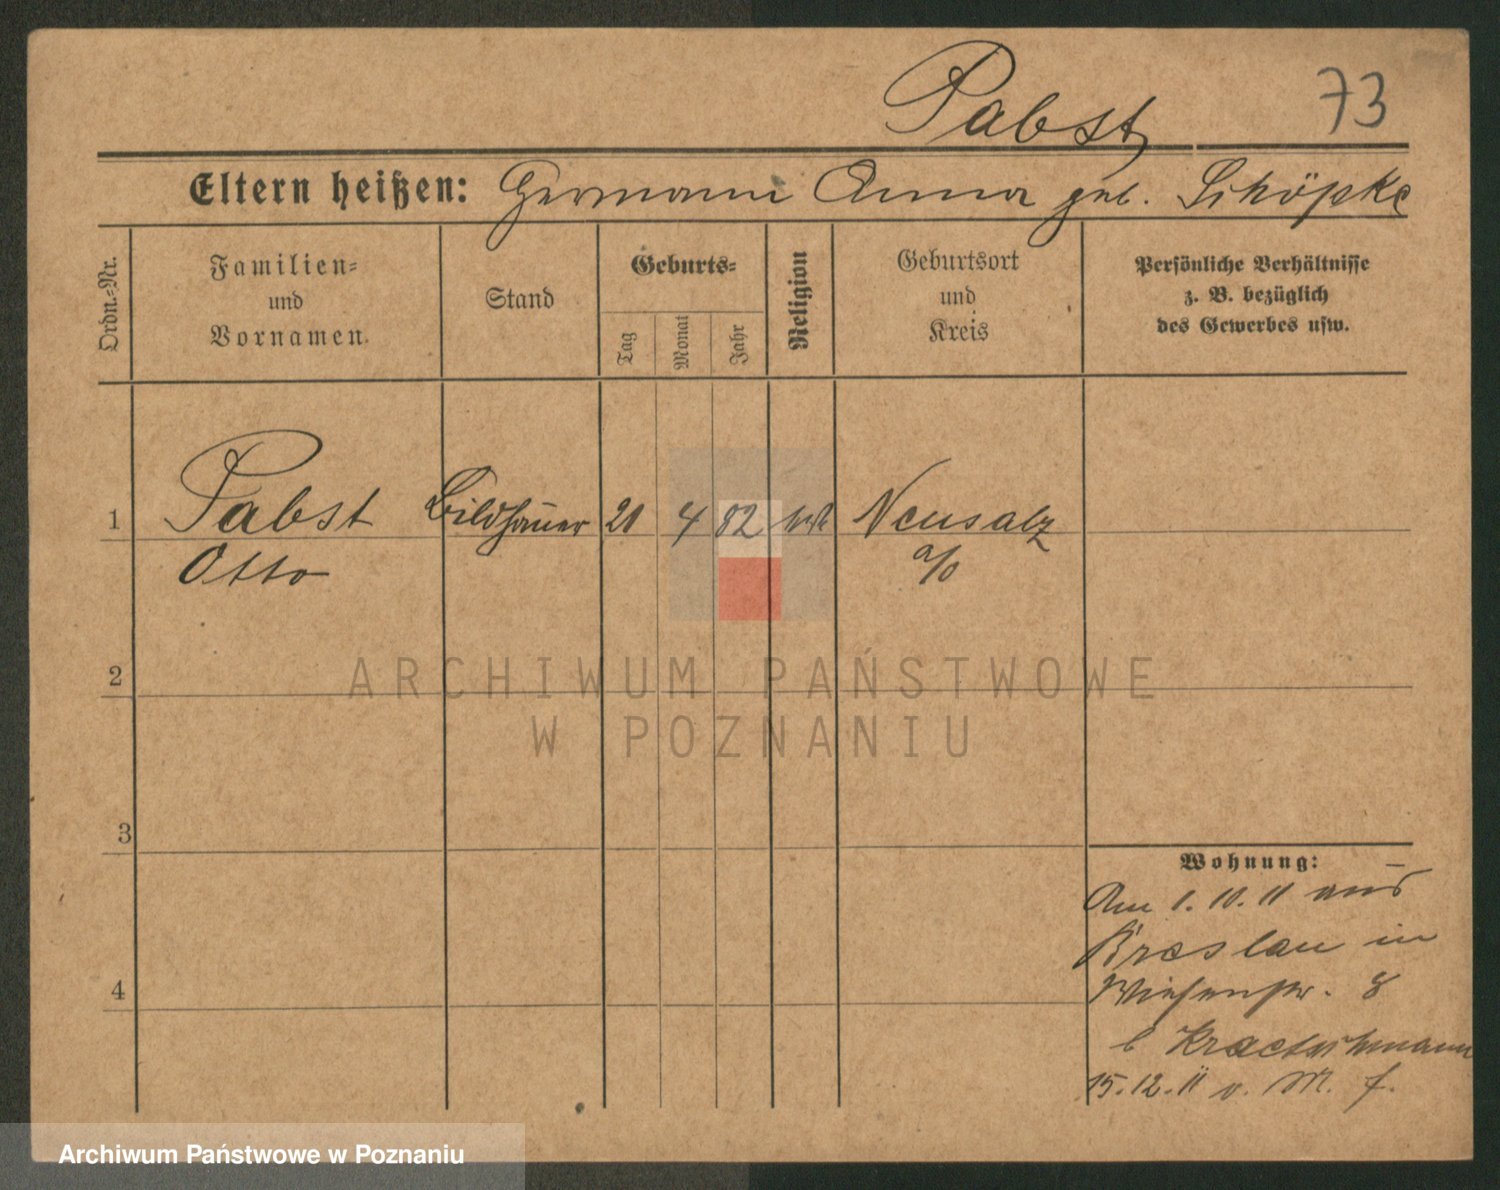 Pabst 73
Eltern heißen: Hermann Anna geb. Schöpke
Ordn.-Nr.
Familien-
und
Vornamen.
Stand
Geburts-
Tag
Monat
Jahr
Religion
Geburtsort
und
Kreis
Persönliche Verhältnisse
z. B. bezüglich
des Gewerbes usw.
1 Pabst Bildhauer 21 4 82 Neusalz
Otto a/O
2
ARCHIWUM PAŃSTWOWE
W POZNANIU
3
Wohnung:
Am 1.10.11 aus
Breslau in
Wiesenstr. 8
b
4
15.12.11 v. M. f.
Archiwum Państwowe w Poznaniu